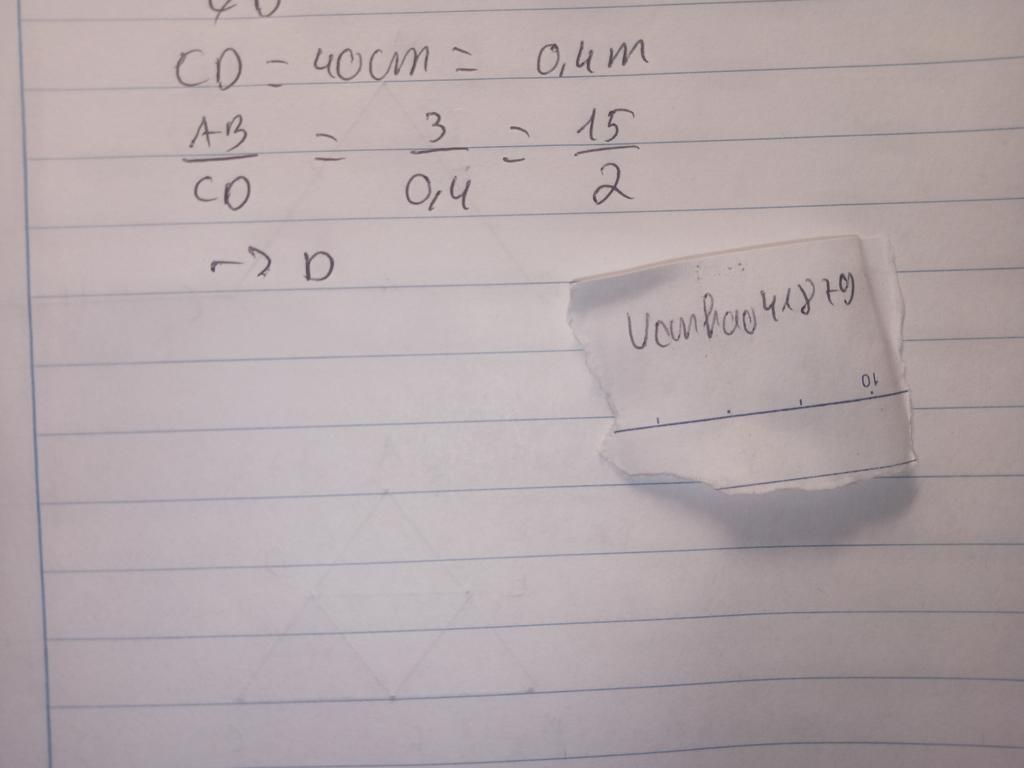 CD = 40cm = 0,4m
AB/CD = 3/0,4 = 15/2
-> D
Vanhao41879
10